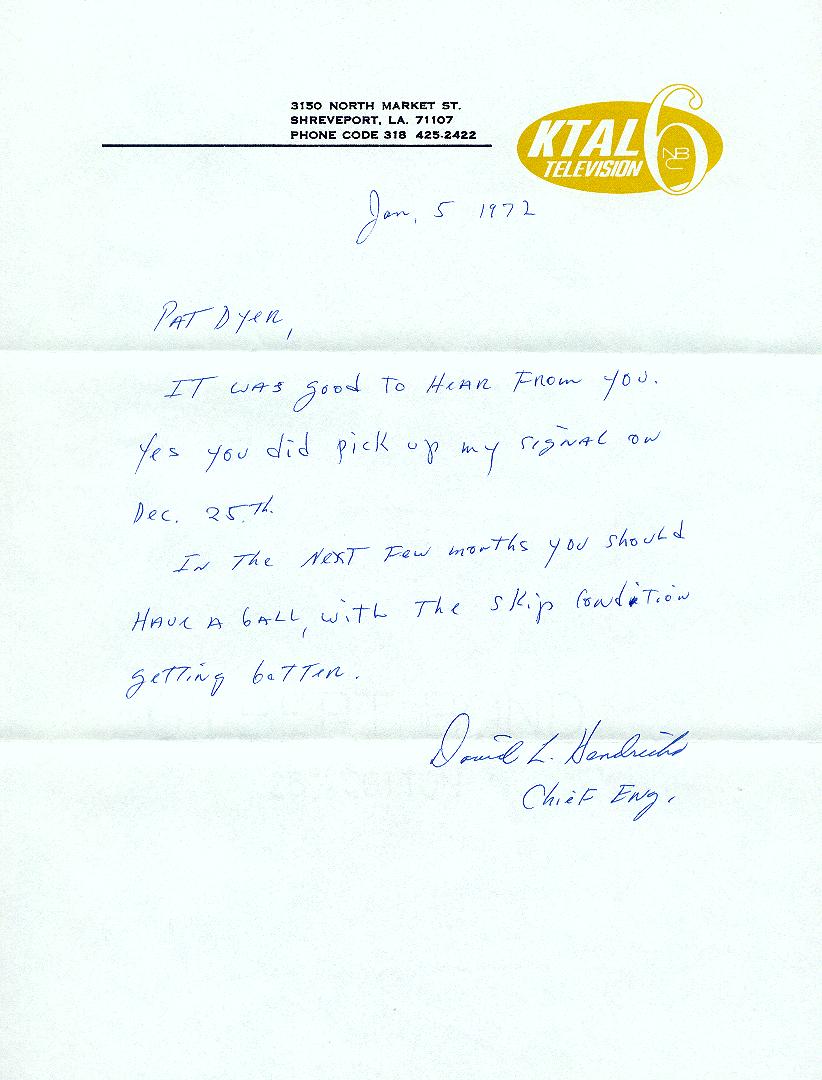 3150 NORTH MARKET ST.
SHREVEPORT, LA. 71107
PHONE CODE 318 425-2422
KTAL 6
TELEVISION
NBC
Jan, 5 1972
PAT Dyer,
IT WAS good To HEAR From you.
Yes you did pick up my signal on
Dec. 25.Th.
In The Next Few months you should
HAVE A bALL, with The skip Condition
getting better.
David L. Hendricks
Chief Eng.